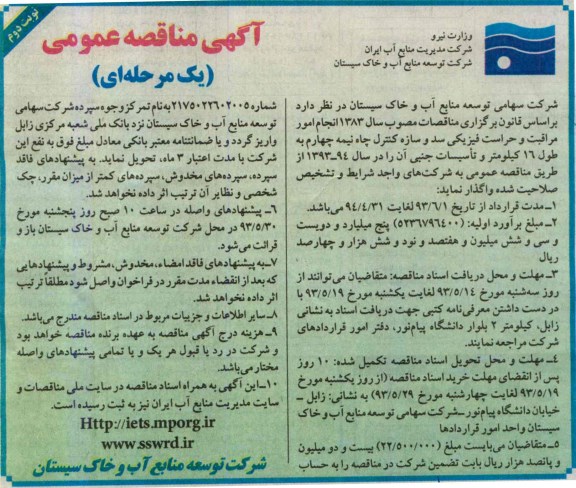 نوبت دوم
وزارت نیرو
شرکت مدیریت منابع آب ایران
شرکت توسعه منابع آب و خاک سیستان
آگهی مناقصه عمومی
(یک مرحله‌ای)
شرکت سهامی توسعه منابع آب و خاک سیستان در نظر دارد
براساس قانون برگزاری مناقصات مصوب سال ۱۳۸۳ انجام امور
مراقبت و حراست فیزیکی سد و سازه کنترل چاه نیمه چهارم به
طول ۱۶ کیلومتر و تأسیسات جنبی آن را در سال ۹۴-۱۳۹۳ از
طریق مناقصه عمومی به شرکت‌های واجد شرایط و تشخیص
صلاحیت شده واگذار نماید:
۱-مدت قرارداد از تاریخ ۹۳/۶/۱ لغایت ۹۴/۴/۳۱ می‌باشد.
۲-مبلغ برآورد اولیه: (۵۲۳۶۷۹۶۴۰۰) پنج میلیارد و دویست
و سی و شش میلیون و هفتصد و نود و شش هزار و چهارصد
ریال
۳- مهلت و محل دریافت اسناد مناقصه: متقاضیان می‌توانند از
روز سه‌شنبه مورخ ۹۳/۵/۱۴ لغایت یکشنبه مورخ ۹۳/۵/۱۹ با
در دست داشتن معرفی‌نامه کتبی جهت دریافت اسناد به نشانی
زابل، کیلومتر ۲ بلوار دانشگاه پیام‌نور، دفتر امور قراردادهای
شرکت مراجعه نمایند.
۴- مهلت و محل تحویل اسناد مناقصه تکمیل شده: ۱۰ روز
پس از انقضای مهلت خرید اسناد مناقصه (از روز یکشنبه مورخ
۹۳/۵/۱۹ لغایت چهارشنبه مورخ ۹۳/۵/۲۹) به نشانی: زابل -
خیابان دانشگاه پیام‌نور-شرکت سهامی توسعه منابع آب و خاک
سیستان واحد امور قراردادها
۵-متقاضیان می‌بایست مبلغ (۲۲/۵۰۰/۰۰۰) بیست و دو میلیون
و پانصد هزار ریال بابت تضمین شرکت در مناقصه را به حساب
شماره ۲۱۷۵۰۲۲۶۰۲۰۰۵ به نام تمرکز وجوه سپرده شرکت سهامی
توسعه منابع آب و خاک سیستان نزد بانک ملی شعبه مرکزی زابل
واریز گردد و یا ضمانتنامه معتبر بانکی معادل مبلغ فوق به نفع این
شرکت با مدت اعتبار ۳ ماه، تحویل نماید. به پیشنهادهای فاقد
سپرده، سپرده‌های مخدوش، سپرده‌های کمتر از میزان مقرر، چک
شخصی و نظایر آن ترتیب اثر داده نخواهد شد.
۶- پیشنهادهای واصله در ساعت ۱۰ صبح روز پنجشنبه مورخ
۹۳/۵/۳۰ در محل شرکت توسعه منابع آب و خاک سیستان باز و
قرائت می‌شود.
۷-به پیشنهادهای فاقد امضاء، مخدوش، مشروط و پیشنهادهایی
که بعد از انقضاء مدت مقرر در فراخوان واصل شود مطلقاً ترتیب
اثر داده نخواهد شد.
۸-سایر اطلاعات و جزییات مربوط در اسناد مناقصه مندرج می‌باشد.
۹-هزینه درج آگهی مناقصه به عهده برنده مناقصه خواهد بود
و شرکت در رد یا قبول هر یک و یا تمامی پیشنهادهای واصله
مختار می‌باشد.
۱۰-این آگهی به همراه اسناد مناقصه در سایت ملی مناقصات و
سایت مدیریت منابع آب ایران نیز به ثبت رسیده است.
Http://iets.mporg.ir
www.sswrd.ir
شرکت توسعه منابع آب و خاک سیستان